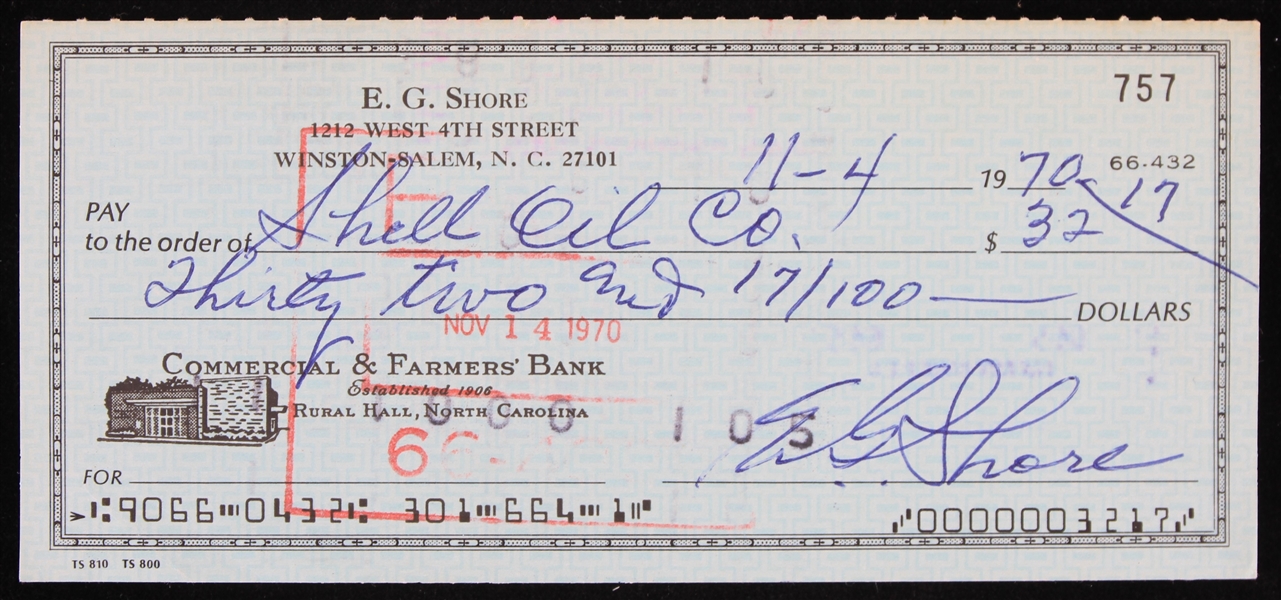 757
E. G. SHORE
1212 WEST 4TH STREET
WINSTON-SALEM, N. C. 27101
11-4 1970 66-432
PAY
to the order of Shell Oil Co. $ 32 17
Thirty two and 17/100 DOLLARS
NOV 14 1970
COMMERCIAL & FARMERS' BANK
Established 1906
RURAL HALL, NORTH CAROLINA
E G Shore
FOR
9066 0432 301 664 1 0000003217
TS 810 TS 800